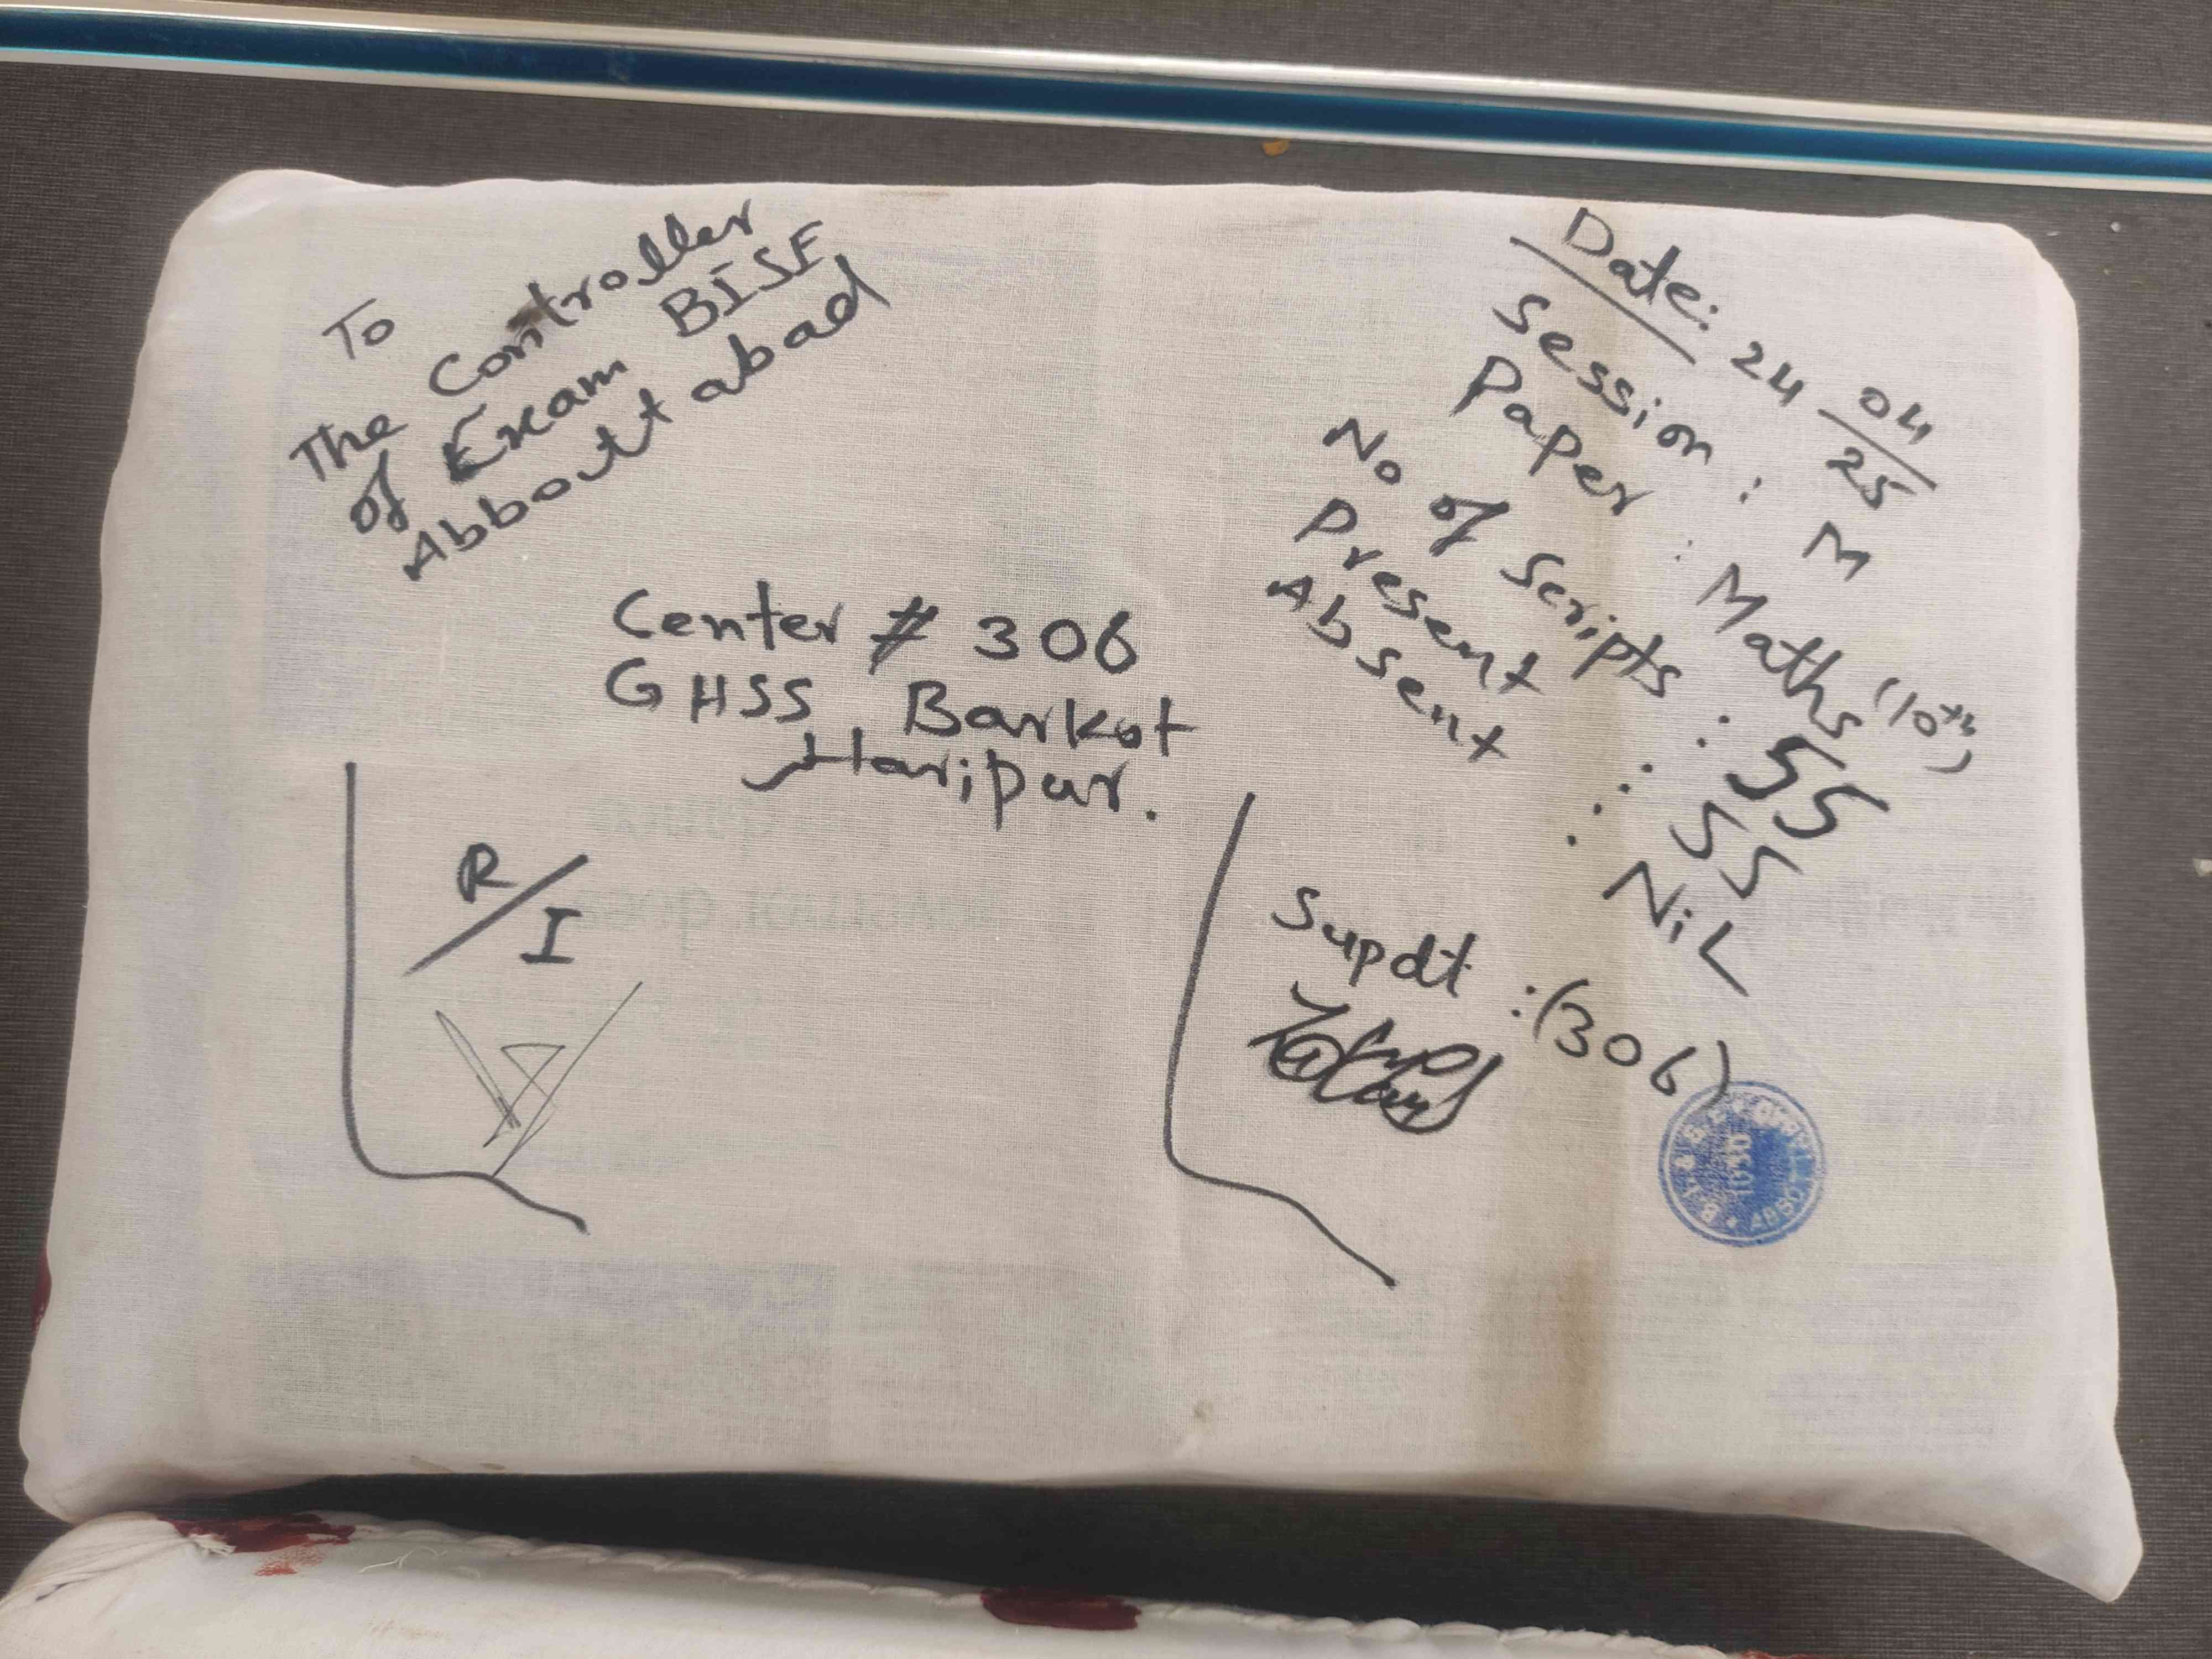 To
The Controller
of Exam BISE
Abbottabad
Date: 24 04/25
Session : M
Paper : Maths (10th)
No of Scripts : 55
Present : 55
Absent : NiL
Center # 306
GHSS Barkot
Haripur.
R/I
Supdt :(306)